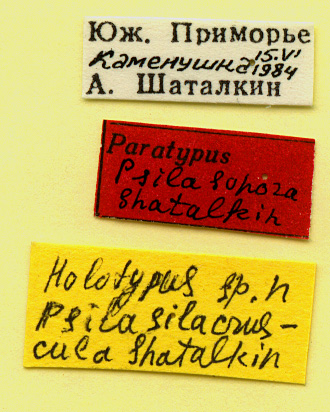 Юж. Приморье
Каменушка 15.VI
1984
А. Шаталкин
Paratypus
Psila sonora
Shatalkin
Holotypus sp. n
Psila silacrus-
cula Shatalkin